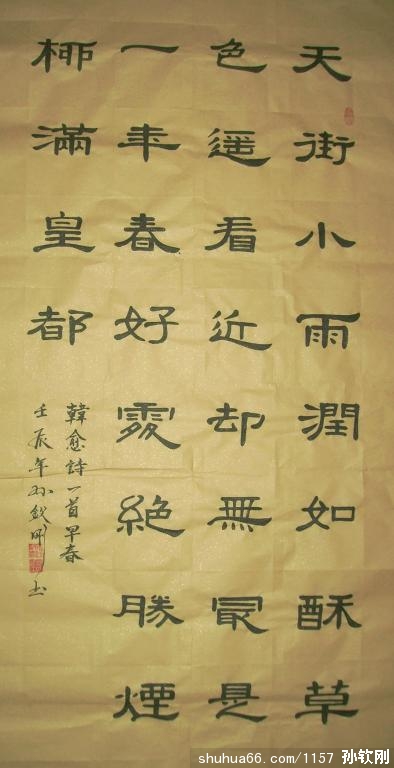 天街小雨潤如酥草
色遥看近却無冣是
一年春好處絶勝煙
柳滿皇都
韓愈詩一首早春
壬辰年孙钦刚书
shuhua66.com/1157 孙钦刚